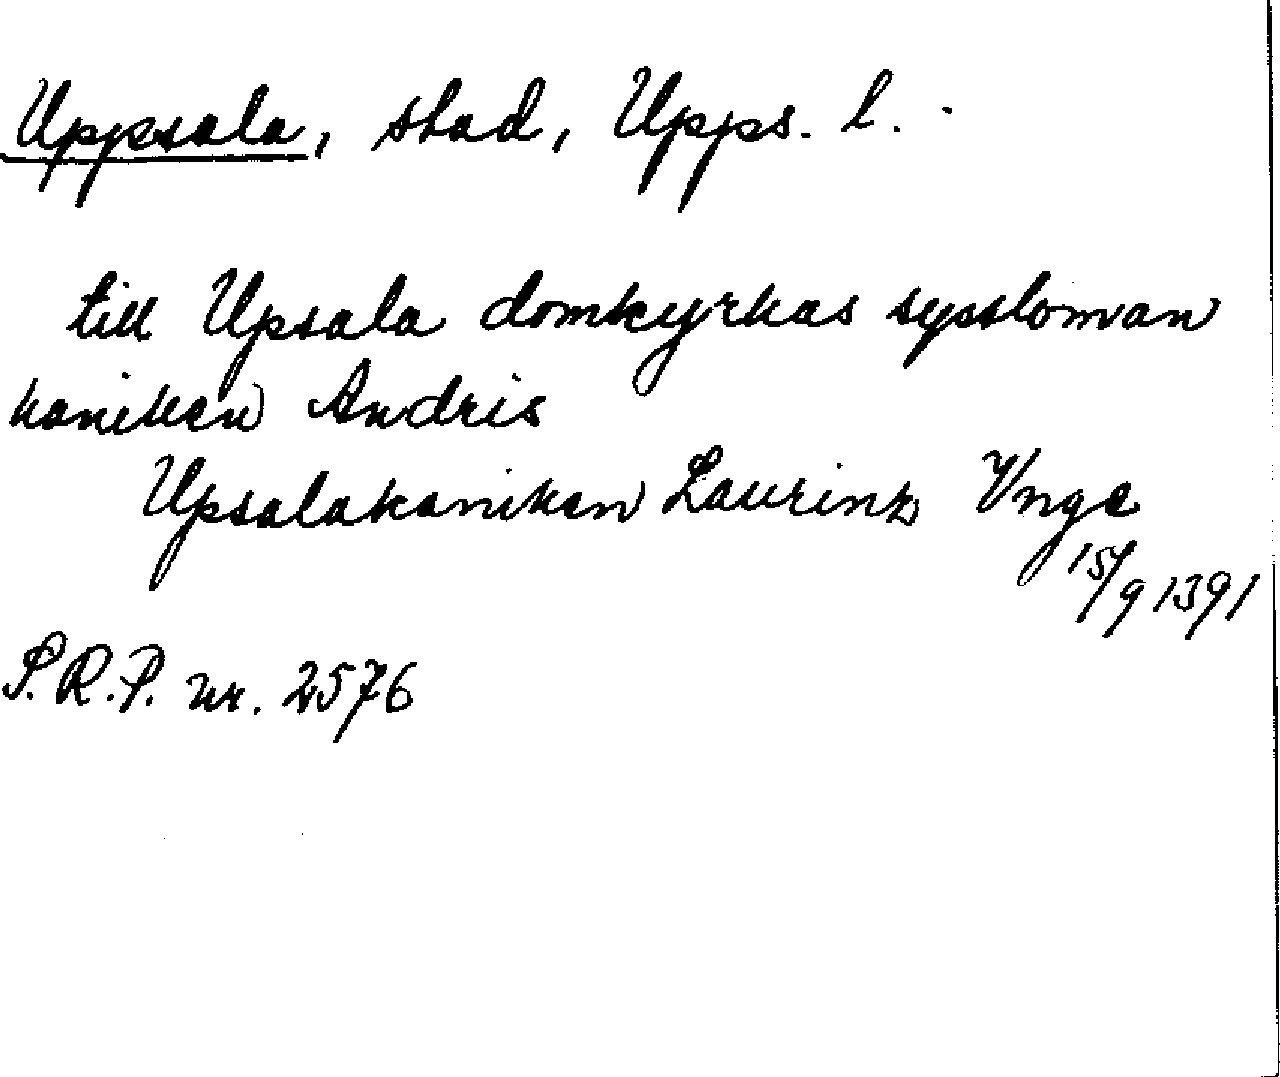 Uppsala, stad, Upps. l.
till Upsala domkyrkas syssloman
kaniken Andris
Upsalakaniken Laurinz Ynge
15/9 1391
S.R.P. nr. 2576